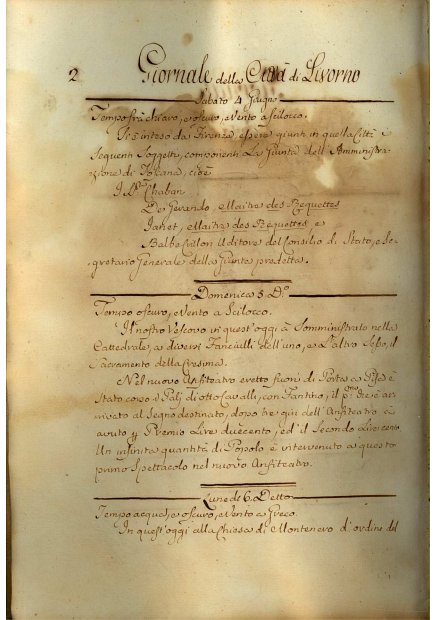 2 Giornale della Città di Livorno
Sabato 4 Giugno
Tempo frà chiaro, e oscuro, e Vento a Scilocco.
Si è inteso da Firenze, essere giunti in quella Città i
Sequenti Soggetti, componenti La Giunta dell'Amministra-
zione di Toscana, cioè
I Chaban
De Gerando, Maitre des Requettes
Janet, Maitre des Requettes, e
Balbe Crillon Uditore del Consilio di Stato, e Se-
gretario Generale della Giunta predetta.
Domenica 5. Do.
Tempo oscuro, e Vento a Scilocco.
Il nostro Vescovo in quest'oggi à Somministrato nella
Cattedrale, a diversi Fanciulli dell'uno, e L'altro Sesso, il
Sacramento della Cresima.
Nel nuovo Anfiteatro eretto fuori di Porta a Pisa è
Stato corso il Palj di otto Cavalli, con Fantino, il pmo che è ar-
rivato al Segno destinato, dopo tre giri dell'Anfiteatro à
avuto Premio Lire duecento, ed il Secondo Lire cento
Un infinita quantità di Popolo è intervenuto a questo
primo Spettacolo nel nuovo Anfiteatro.
Lunedì 6. Detto
Tempo acqua, e oscuro, e Vento a Greco.
In quest'oggi alla Chiesa di Montenero d'ordine del